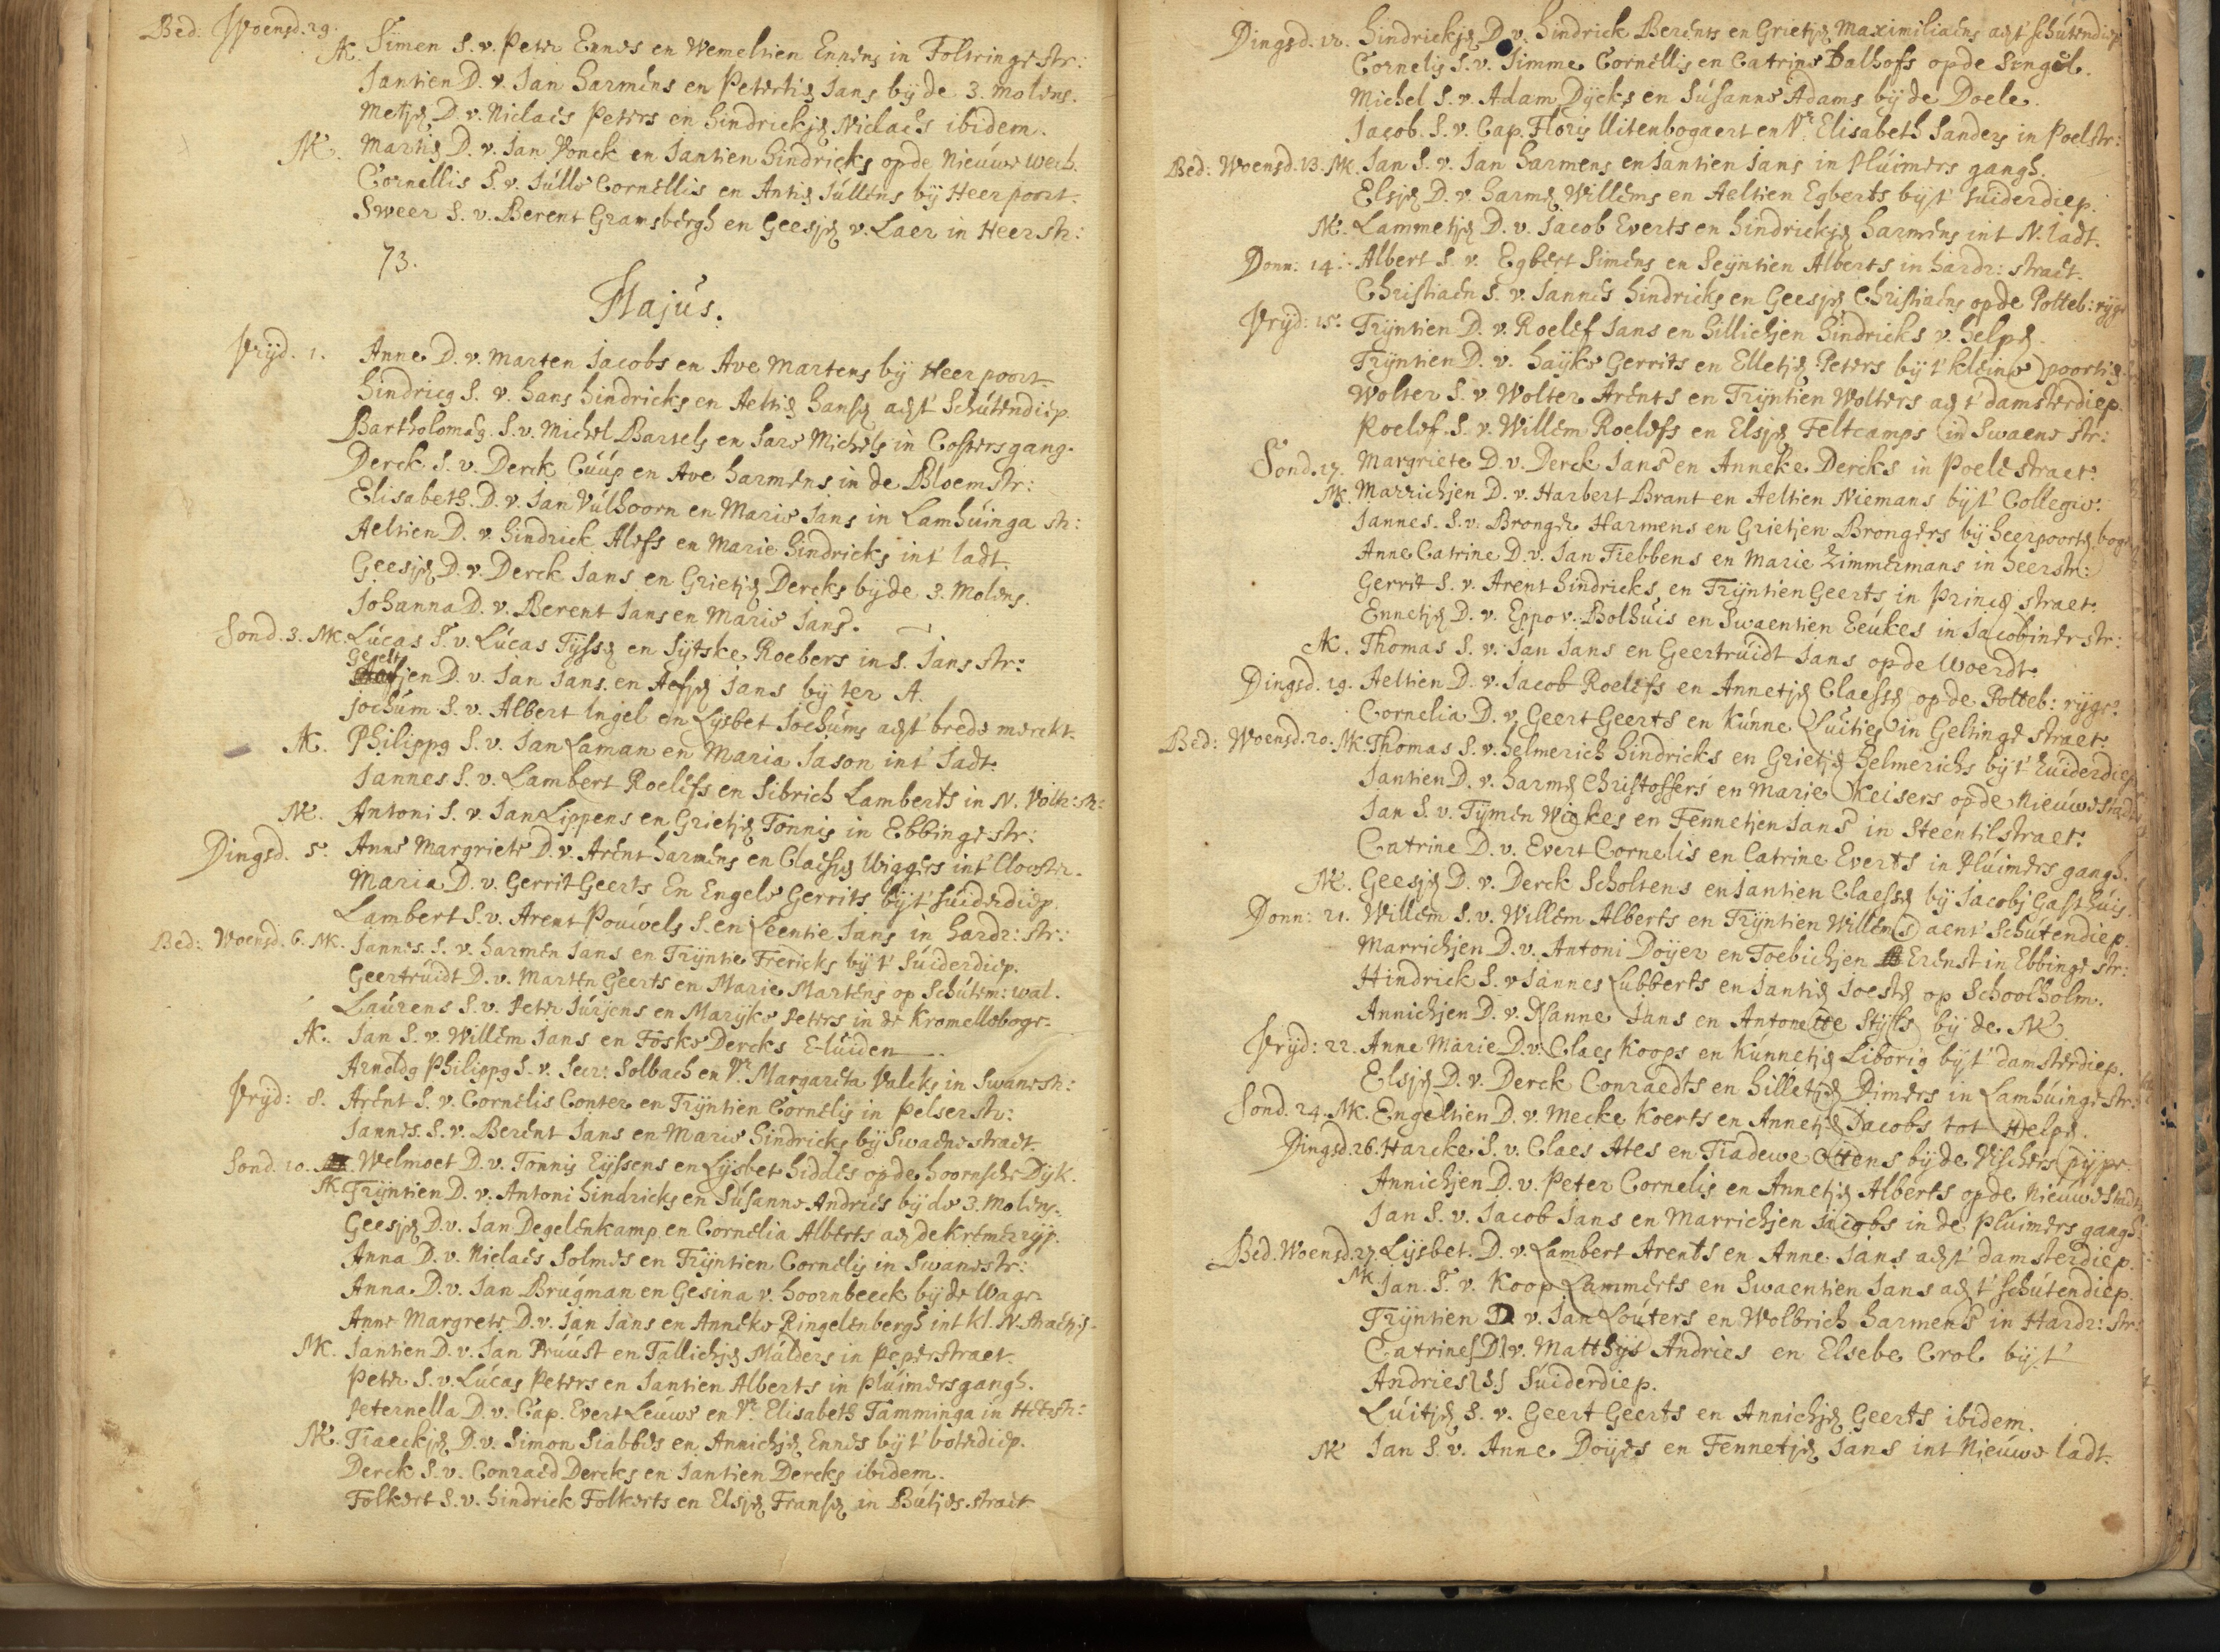 Bed: Woensd. 29.
AK. Simen S. v. Peter Ennes en Wemeltien Ennens in Folkinge str:
Jantien D. v. Jan Harmens en Petertig Jans by de 3. Molens.
Metjen D. v. Niclaes Peters en Hindrickjen Niclaes ibidem.
NK. Martig D. v. Jan Vonck en Jantien Hindricks op de Nieuwe wech.
Cornellis S. v. Julle Cornellis en Antig Jullens by Heer poort.
Sweer S. v. Berent Gramsbergh en Geesjen v. Laer in Heer str:
73.
Majus.
Vryd. 1. Anne D. v. Marten Jacobs en Ave Martens by Heer poort.
Hindricg S. v. Hans Hindricks en Aeltig Hansen aen 't Schutendiep.
Bartholomeg. S. v. Michel Bartels en Sare Michels in Costersgang.
Derck S. v. Derck Cuup en Ave Harmens in de Bloemstr:
Elisabeth. D. v. Jan Vulhoorn en Marie Jans in Lamhuinga str:
Aeltien D. v. Hindrick Alefs en Marie Hindricks int ladt.
Geesjen D. v. Derck Jans en Grietjen Dercks by de 3. Molens.
Johanna D. v. Berent Jans en Marie Jans.
Sond. 3. NK. Lucas S. v. Lucas Tyssen en Sytske Roebers in S. Jans str:
Geeltjen D. v. Jan Jans. en Aefjen Jans by ter A.
Jochum S. v. Albert Ingel en Lysbet Jochums aen 't brede merckt.
AK. Philippg S. v. Jan Laman en Maria Jason int Jadt.
Jannes S. v. Lambert Roelefs en Sibrich Lamberts in N. Volk: str:
NK. Antoni S. v. Jan Lippens en Grietjen Tonnis in Ebbinge str:
Dingsd. 5. Anne Margriete D. v. Arent Harmens en Claesjen Wiggers int Clooster.
Maria D. v. Gerrit Geerts En Engele Gerrits by 't Suiderdiep.
Lambert S. v. Arent Pouwels S. en Leentie Jans in Hardr: str:
Bed: Woensd. 6. NK. Jannes. S. v. Harmen Jans en Tryntie Frericks by 't Suiderdiep.
Geertruidt D. v. Marten Geerts en Marie Martens op Schutem: wal.
Laurens S. v. Peter Jurjens en Maryke Peters in de Kromelleboge.
AK. Jan S. v. Willem Jans en Foske Dercks E-luiden
Arnoldg Philippg S. v. Secr: Solbach en Vr. Margareta Valcks in Swanestr:
Vryd: 8. Arent S. v. Cornelis Conter en Tryntien Cornelis in Pelserstr:
Jannes. S. v. Berent Jans en Marie Hindricks by Swaenestraet.
Sond. 10. Welmoet D. v. Tonnis Eyssens en Lysbet Hiddes op de hoornsche Dyk.
AK Tryntien D. v. Antoni Hindricks en Susanne Andries by de 3. Molens.
Geesjen D. v. Jan Degelenkamp en Cornelia Alberts aen de Kremerryp.
Anna D. v. Niclaes Solmes en Tryntien Cornelis in Swanestr:
Anna D. v. Jan Brugman en Gesina v. Hoornbeeck by de Wage.
Anne Margrete D. v. Jan Jans en Anneke Ringelenbergh int kl. N. straetj.
NK. Jantien D. v. Jan Pruust en Tallichjen Mulders in Peperstraet.
Peter. S. v. Lucas Peters en Jantien Alberts in Pluimersgangh.
Peternella D. v. Cap. Evert Leuwe en Vr. Elisabeth Tamminga in Heerstr:
NK. Tiaeckjen D. v. Simon Siabbes en Annichjen Ennes by 't boterdiep.
Derck S. v. Conraed Dercks en Jantien Dercks ibidem.
Folkert S. v. Hindrick Folkerts en Elsjen Fransen in Butjes.straet
Dingsd. 12. Hindrickjen D. v. Hindrick Berents en Grietjen Maximiliaens aen 't Schutendiep
Cornelis S. v. Simme Cornellis en Catrine Dalhofs op de Singel.
Michel S. v. Adam Dycks en Susanne Adams by de Doele.
Jacob. S. v. Cap. Floris Uitenbogaert en Vr. Elisabeth Sanders in Poelstr:
Bed: Woensd. 13. NK. Jan S. v. Jan Harmens en Jantien Jans in Pluimers gangh.
Elsjen D. v. Harmen Willems en Aeltien Egberts by 't Suiderdiep.
NK. Lammetjen D. v. Jacob Everts en Hindrickjen Harmens int N. ladt.
Donn: 14. Albert S. v. Egbert Simens en Seyntien Alberts in Hardr: straet.
Christiaen S. v. Jannes Hindricks en Geesjen Christiaens op de Potteb: ryge
Vryd: 15. Tryntien D. v. Roelef Jans en Hillichjen Hindricks v. Helpen.
Tryntien D. v. Hayke Gerrits en Elletjen Peters by 't kleine poortig.
Wolter S. v. Wolter Arents en Tryntien Wolters aen 't damsterdiep.
Roelef. S. v. Willem Roelefs en Elsjen Feltcamps in Swaene str:
Sond. 17. Margriete D. v. Derck Jans en Anneke Dercks in Poelestraet.
NK. Marrichjen D. v. Harbert Brant en Aeltien Niemans by 't Collegie.
Jannes. S. v. Bronger Harmens en Grietjen Brongers by heerpoorten boge
Anne Catrine D. v. Jan Tiebbens en Marie Zimmermans in heerstr:
Gerrit S. v. Arent Hindricks en Tryntien Geerts in Princen straet.
Ennetjen D. v. Eppo v. Bolhuis en Swaentien Eeukes in Jacobinerstr:
AK. Thomas S. v. Jan Jans en Geertruidt Jans op de Woerdt.
Dingsd. 19. Aeltien D. v. Jacob Roelefs en Annetjen Claessen op de Potteb: ryge.
Cornelia D. v. Geert Geerts en Kunne Luities in Geltinge straet.
Bed: Woensd. 20. NK. Thomas S. v. Helmerich Hindricks en Grietjen Helmerichs by 't Zuiderdiep
Jantien D. v. Harmen Christoffers en Marie Keisers op de Nieuwestadt
Jan S. v. Tymen Wickes en Fennetjen Jans in Steentilstraet.
Catrine D. v. Evert Cornelis en Catrine Everts in Pluimers gangh.
NK. Geesjen D. v. Derck Scholtens en Jantien Claessen by Jacobs Gasthuis.
Donn: 21. Willem S. v. Willem Alberts en Tryntien Willems aent Schutendiep.
Marrichjen D. v. Antoni Doyer en Foebichjen Erenst in Ebbinge str:
Hindrick S. v Jannes Lubberts en Jantig Joesten op Schoolholm.
Annichjen D. v. Nanne Jans en Antonette Styls by de AK
Vryd: 22. Anne Marie D. v. Claes Koops en Kunnetjen Liborig by 't damsterdiep.
Elsjen D. v. Derck Conraedts en Hilletjen Dimers in Lamhuinge str:
Sond. 24. NK. Engeltien D. v. Mecke Koerts en Annetjen Jacobs tot Helpen.
Dingsd 26. Harcke S. v. Claes Ates en Tiadewe Ottens by de Vischers pype.
Annichjen D. v. Peter Cornelis en Annetjen Alberts op de Nieuwestadt
Jan S. v. Jacob Jans en Marrichjen Jacobs in de Pluimers gangh
Bed. Woensd. 27 Lysbet. D. v. Lambert Arents en Anne Jans aen 't damsterdiep.
NK Jan. S. v. Koop Lammerts en Swaentien Jans aen 't Schutendiep.
Tryntien D v. Jan Louters en Wolbrich Harmens in Hardr: str:
Catrine D v. Matthys Andries en Elsebe Crol by 't
Andries S Suiderdiep.
Luitjen S. v. Geert Geerts en Annichjen Geerts ibidem.
NK Jan S. v. Anne Doyes en Fennetjen Jans int Nieuwe ladt.